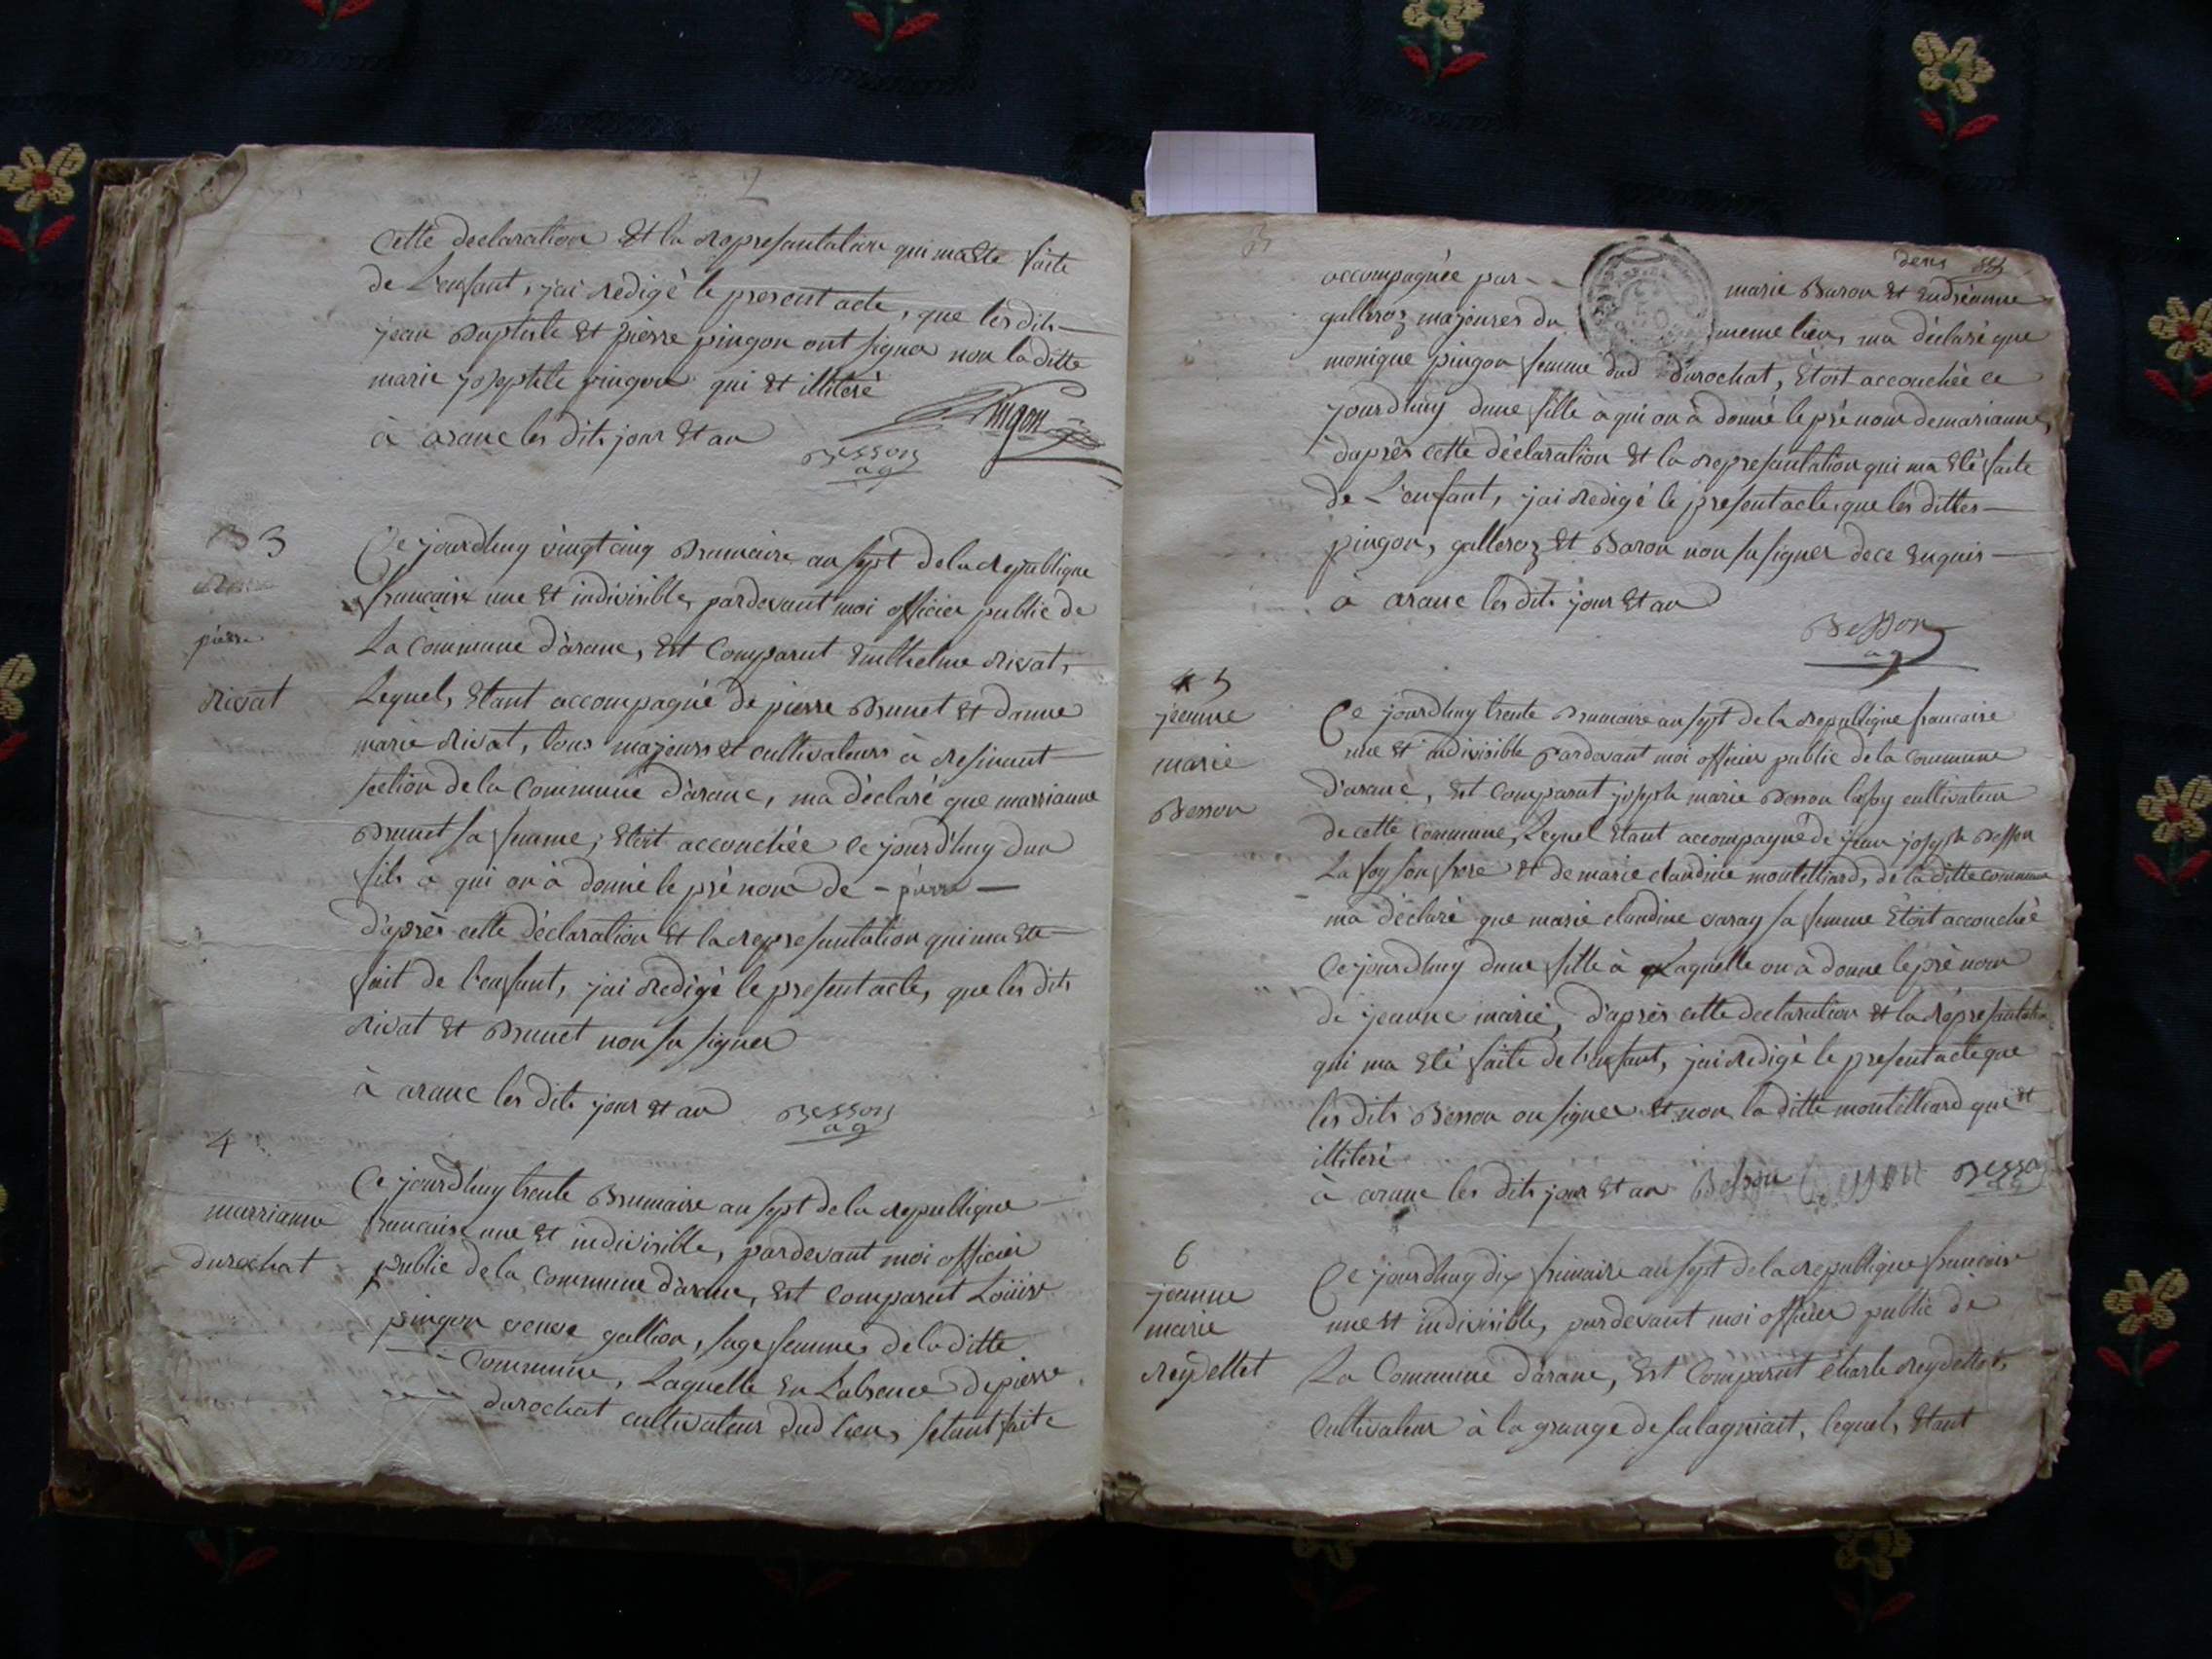 2
Cette declaration Et la representation qui ma Ete faite
de L'enfant, jai redigé le present acte, que les dits
jean Baptiste Et pierre pingon ont signer non la ditte
marie josephte pingon qui Et illiteré
à aranc les dits jour Et an
Pingon
Besson
ag
3
pierre
rivat
Ce jourdhuy vingt cinq Brumaire an sept de la republique
francaise une Et indivisible, pardevant moi officier public de
La Commune d'aranc, Est Comparut Enthelme rivat,
Lequel, Etant accompagné de pierre Brunet Et danne
marie rivat, tous majeurs Et cultivateurs à resinant
section de la Commune d'aranc, ma déclaré que marrianne
Brunet sa femme, Etoit accouchée Ce jourd'huy dun
fils à qui on à donné le pré nom de - pierre -
d'après cette déclaration Et la representation qui ma Ete
fait de l'enfant, jai redigé le present acte, que les dits
rivat Et Brunet non su signer
à aranc les dits jour Et an
Besson
ag
4
marrianne
durochat
Ce jourdhuy trente Brumaire an sept de la republique
francaise une Et indivisible, pardevant moi officier
public de la Commune d'aranc, Est Comparut Loüise
pingon veuve gallion, sage femme de la ditte
Commune, Laquelle En L'absence de pierre
durochat cultivateur dud lieu, setant faite
3
accompagnée par marie Baron Et Endréanne
galleroz majeures du meme lieu, ma déclaré que
monique pingon femme dud durochat, Etoit accouchée ce
jourdhuy dune fille à qui on à donné le pré nom de marianne,
d'après cette déclaration Et la representation qui ma Eté faite
de L'enfant, jai redigé le present acte, que les dittes
pingon, galleroz Et Baron non su signer de ce Enquis
à aranc les dits jour Et an
Besson
ag
5
jeanne
marie
Besson
Ce jourdhuy trente Brumaire an sept de la republique francaise
une Et indivisible Pardevant moi officier public de la Commune
D'aranc, Est Comparut joseph marie Besson cultivateur
de cette Commune, Lequel Etant accompagné de jean joseph Besson
La foy son frere Et de marie claudine montilliard, de la ditte commune
ma déclaré que marie claudine varay sa femme Etoit accouchée
Ce jourdhuy dune fille à Laquelle on à donne le pré nom
de jeanne marie, d'après cette declaration Et la representation
qui ma Eté faite de l'enfant, jai redigé le present acte que
les dits Besson on signer Et non la ditte montilliard qui Et
illiteré
à aranc les dits jour Et an Besson Besson Besson
ag
6
jeanne
marie
reydellet
Ce jourdhuy dix frimaire an sept de la republique francaise
une Et indivisible, pardevant moi officier public de
La Commune d'aranc, Est Comparut charle reydellet,
Cultivateur à la grange de salagniait, lequel, Etant